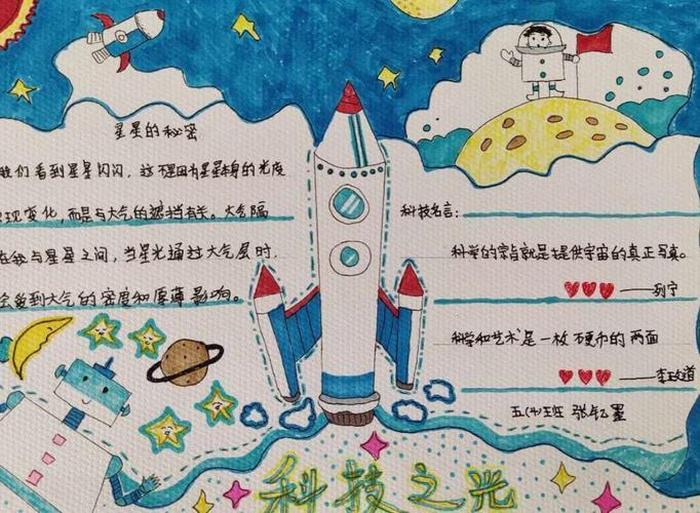 星星的秘密
我们看到星星闪闪，这不是因为星星本身的光度
出现变化，而是与大气的遮挡有关。大气隔
在我与星星之间，当星光通过大气层时，
会受到大气的密度和厚薄影响。
科技名言：
科学的宗旨就是提供宇宙的真正写真。
——列宁
科学和艺术是一枚硬币的两面
——李政道
五(4)班 张钇墨
科技之光